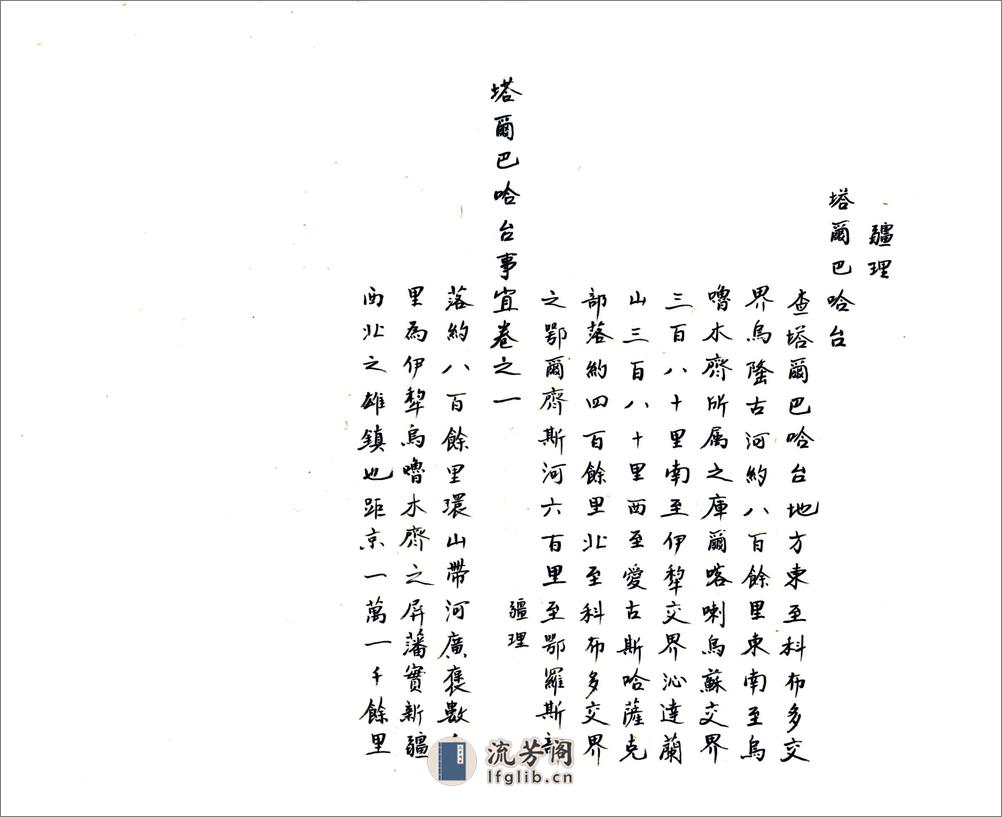 疆理
塔爾巴哈台
查塔爾巴哈台地方東至科布多交
界烏隆古河約八百餘里東南至烏
嚕木齊所属之庫爾喀喇烏蘇交界
三百八十里南至伊犂交界沁達蘭
山三百八十里西至愛古斯哈薩克
部落約四百餘里北至科布多交界
之鄂爾齊斯河六百里至鄂羅斯部
塔爾巴哈台事宜卷之一 疆理
落約八百餘里環山帶河廣袤數
里為伊犂烏嚕木齊之屏藩實新疆
西北之雄鎮也距京一萬一千餘里
流芳阁
lfglib.cn